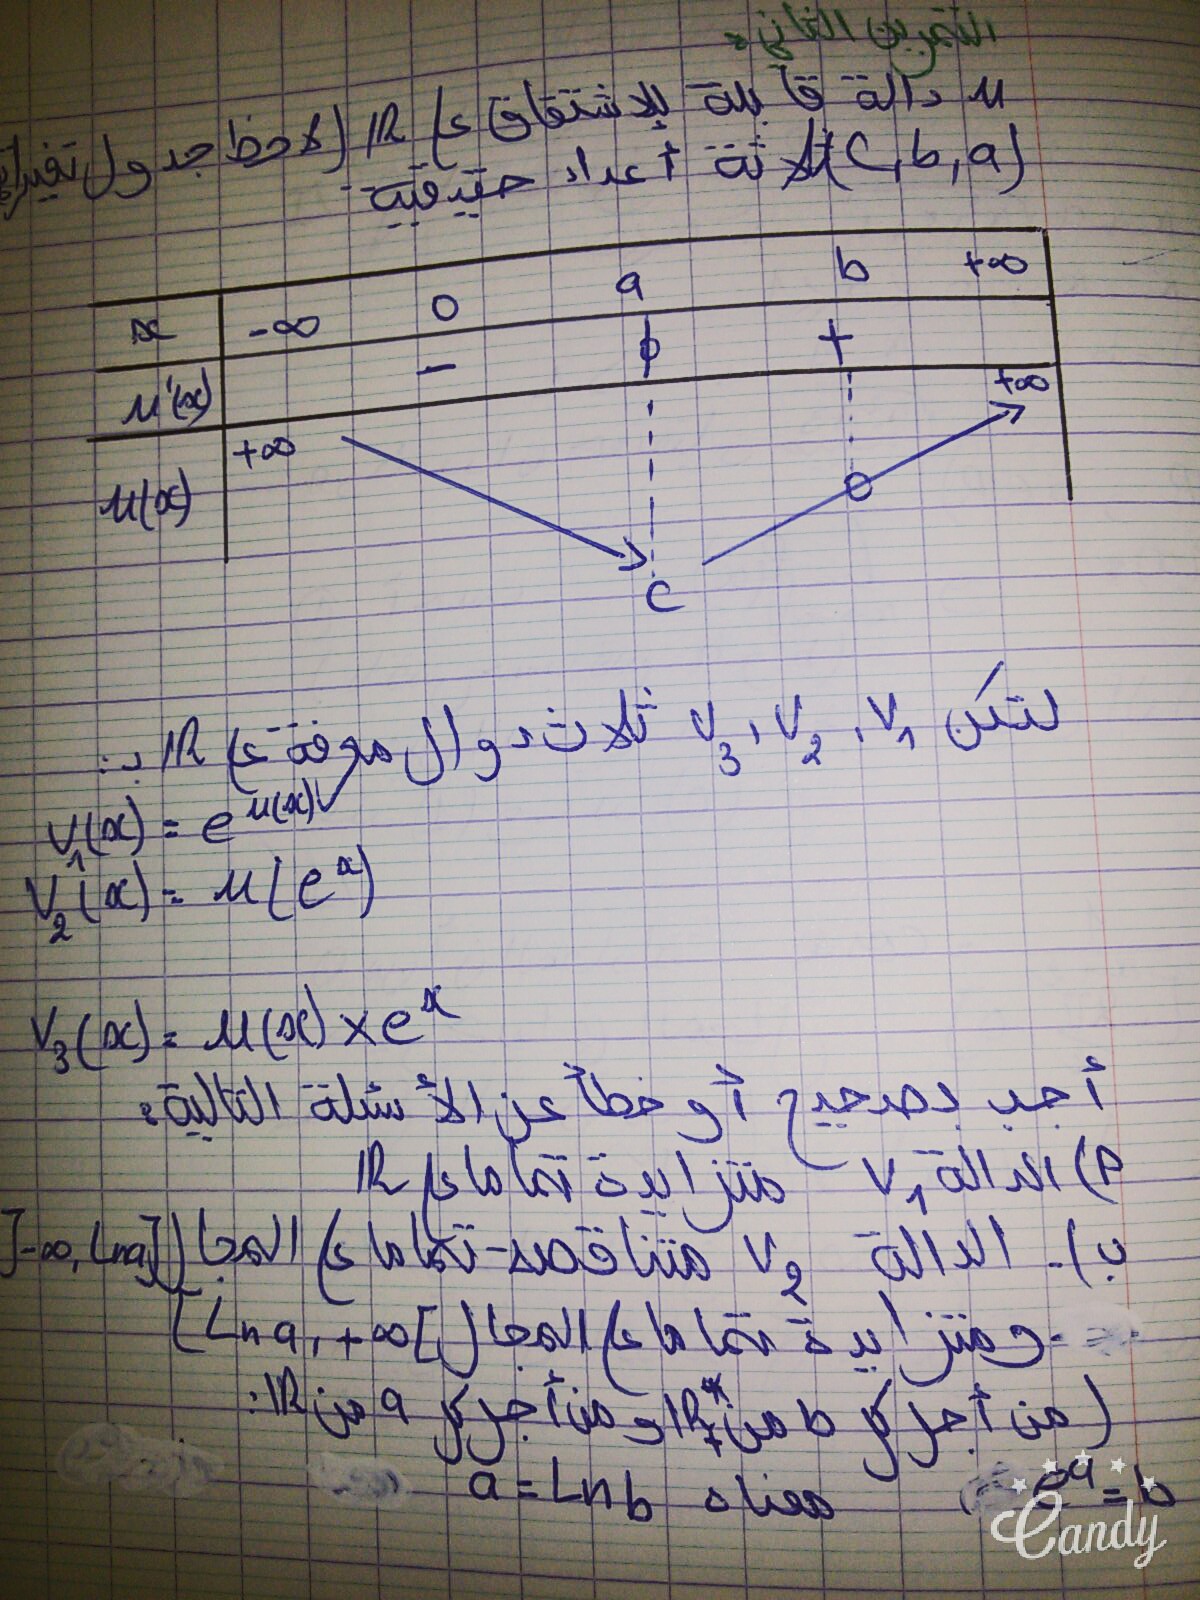 التمرين الثاني:
u دالة قابلة للإشتقاق على R (لاحظ جدول تغيراتها
(a, b, c) ثلاثة أعداد حقيقية.
x -∞ 0 a b +∞
u'(x) - 0 +
u(x) +∞ c 0 +∞
لتكن V₁, V₂, V₃ ثلاث دوال معرفة على R بـ:
V₁(x) = e^u(x)
V₂(x) = u(e^x)
V₃(x) = u(x) × e^x
أجب بصحيح أو خطأ عن الأسئلة التالية:
أ) الدالة V₁ متزايدة تماما على R
ب)- الدالة V₂ متناقصة تماما على المجال ]-∞, Ln a]
- ومتزايدة تماما على المجال ]Ln a, +∞[
(من أجل كل b من R*₊ ومن أجل كل a من R:
e^a = b معناه a = Ln b
Candy